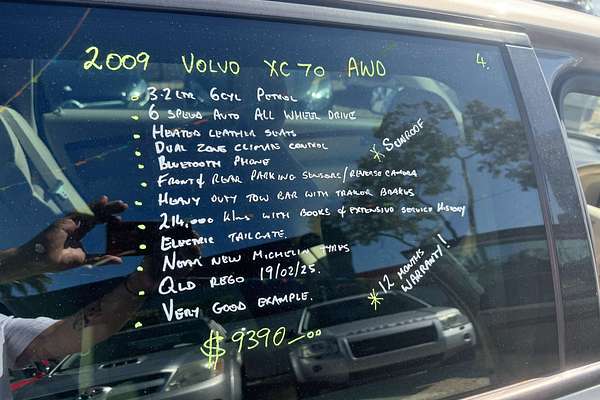 2009 VOLVO XC70 AWD 4.
3.2 LTR 6CYL PETROL
6 SPEED AUTO ALL WHEEL DRIVE
HEATED LEATHER SEATS
DUAL ZONE CLIMATE CONTROL
* SUNROOF
BLUETOOTH PHONE
FRONT & REAR PARKING SENSORS/REVERSE CAMERA
HEAVY DUTY TOW BAR WITH TRAILOR BRAKES
214,000 KLMS WITH BOOKS & EXTENSIVE SERVICE HISTORY
ELECTRIC TAILGATE
NEAR NEW MICHELIN TYRES
QLD REGO 19/02/25.
* 12 MONTHS WARRANTY!
VERY GOOD EXAMPLE.
$9390-00